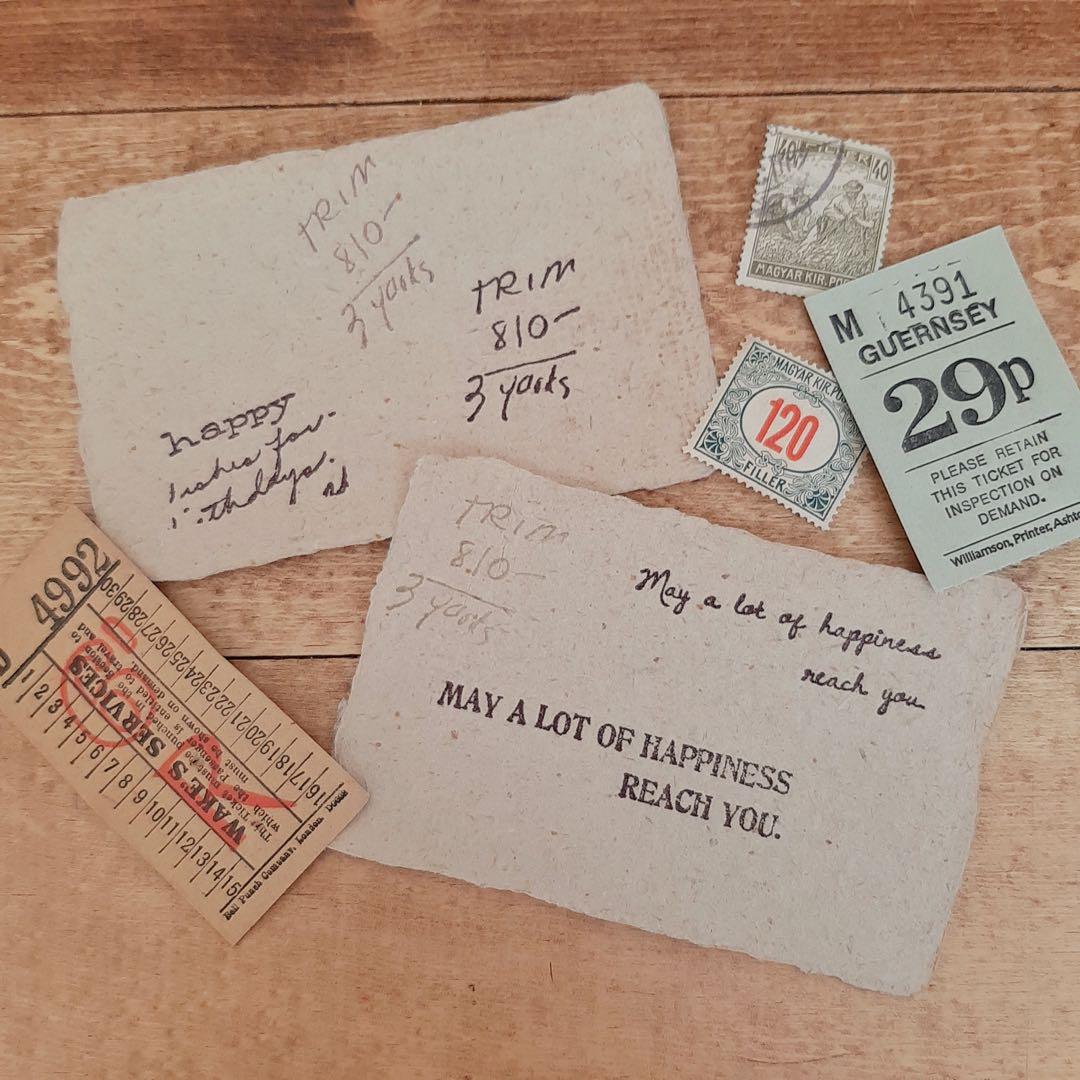 TRIM
810-
3 yards
TRIM
810-
3 yards
happy
ishes for
thdays.
40 40
MAGYAR KIR. PO
M 4391
GUERNSEY
29p
PLEASE RETAIN
THIS TICKET FOR
INSPECTION ON
DEMAND.
Williamson, Printer, Ashto
MAGYAR KIR. PO
120
FILLER
TRIM
8.10-
3 yards
May a lot of happiness
reach you
MAY A LOT OF HAPPINESS
REACH YOU.
4992
1 2 3 4 5 6 7 8 9 10 11 12 13 14 15
WAKE'S SERVICES
This Ticket must be punched in the Section to
which the Passenger is entitled to travel and
must be shown on demand.
16 17 18 19 20 21 22 23 24 25 26 27 28 29 30
Bell Punch Company, London